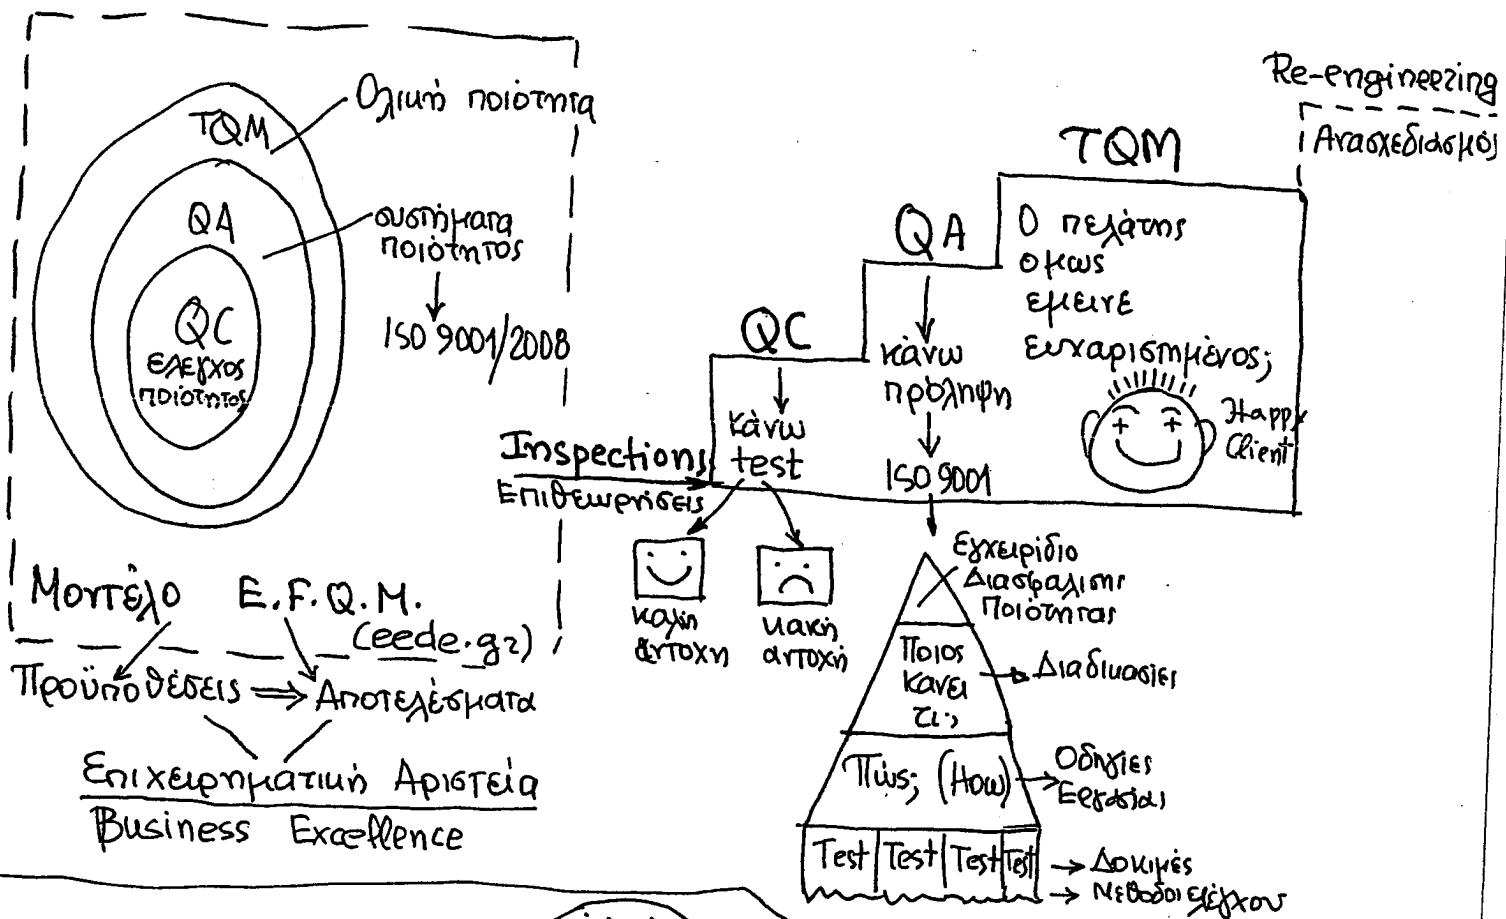 TQM
Ολική ποιότητα
QA
συστήματα
ποιότητος
ISO 9001/2008
QC
έλεγχος
ποιότητος
Μοντέλο E.F.Q.M.
(eede.gr)
Προϋποθέσεις ⇒ Αποτελέσματα
Επιχειρηματική Αριστεία
Business Excellence
Re-engineering
Ανασχεδιασμός
TQM
Ο πελάτης
όμως
έμεινε
ευχαριστημένος;
Happy
Client
QA
κάνω
πρόληψη
ISO 9001
QC
κάνω
test
Inspections
Επιθεωρήσεις
καλή
αντοχή
κακή
αντοχή
Εγχειρίδιο
Διασφάλισης
Ποιότητας
Ποιος
κάνει
τι;
Διαδικασίες
Πώς; (How)
Οδηγίες
Εργασίας
Test Test Test Test
Δοκιμές
Μέθοδοι ελέγχου